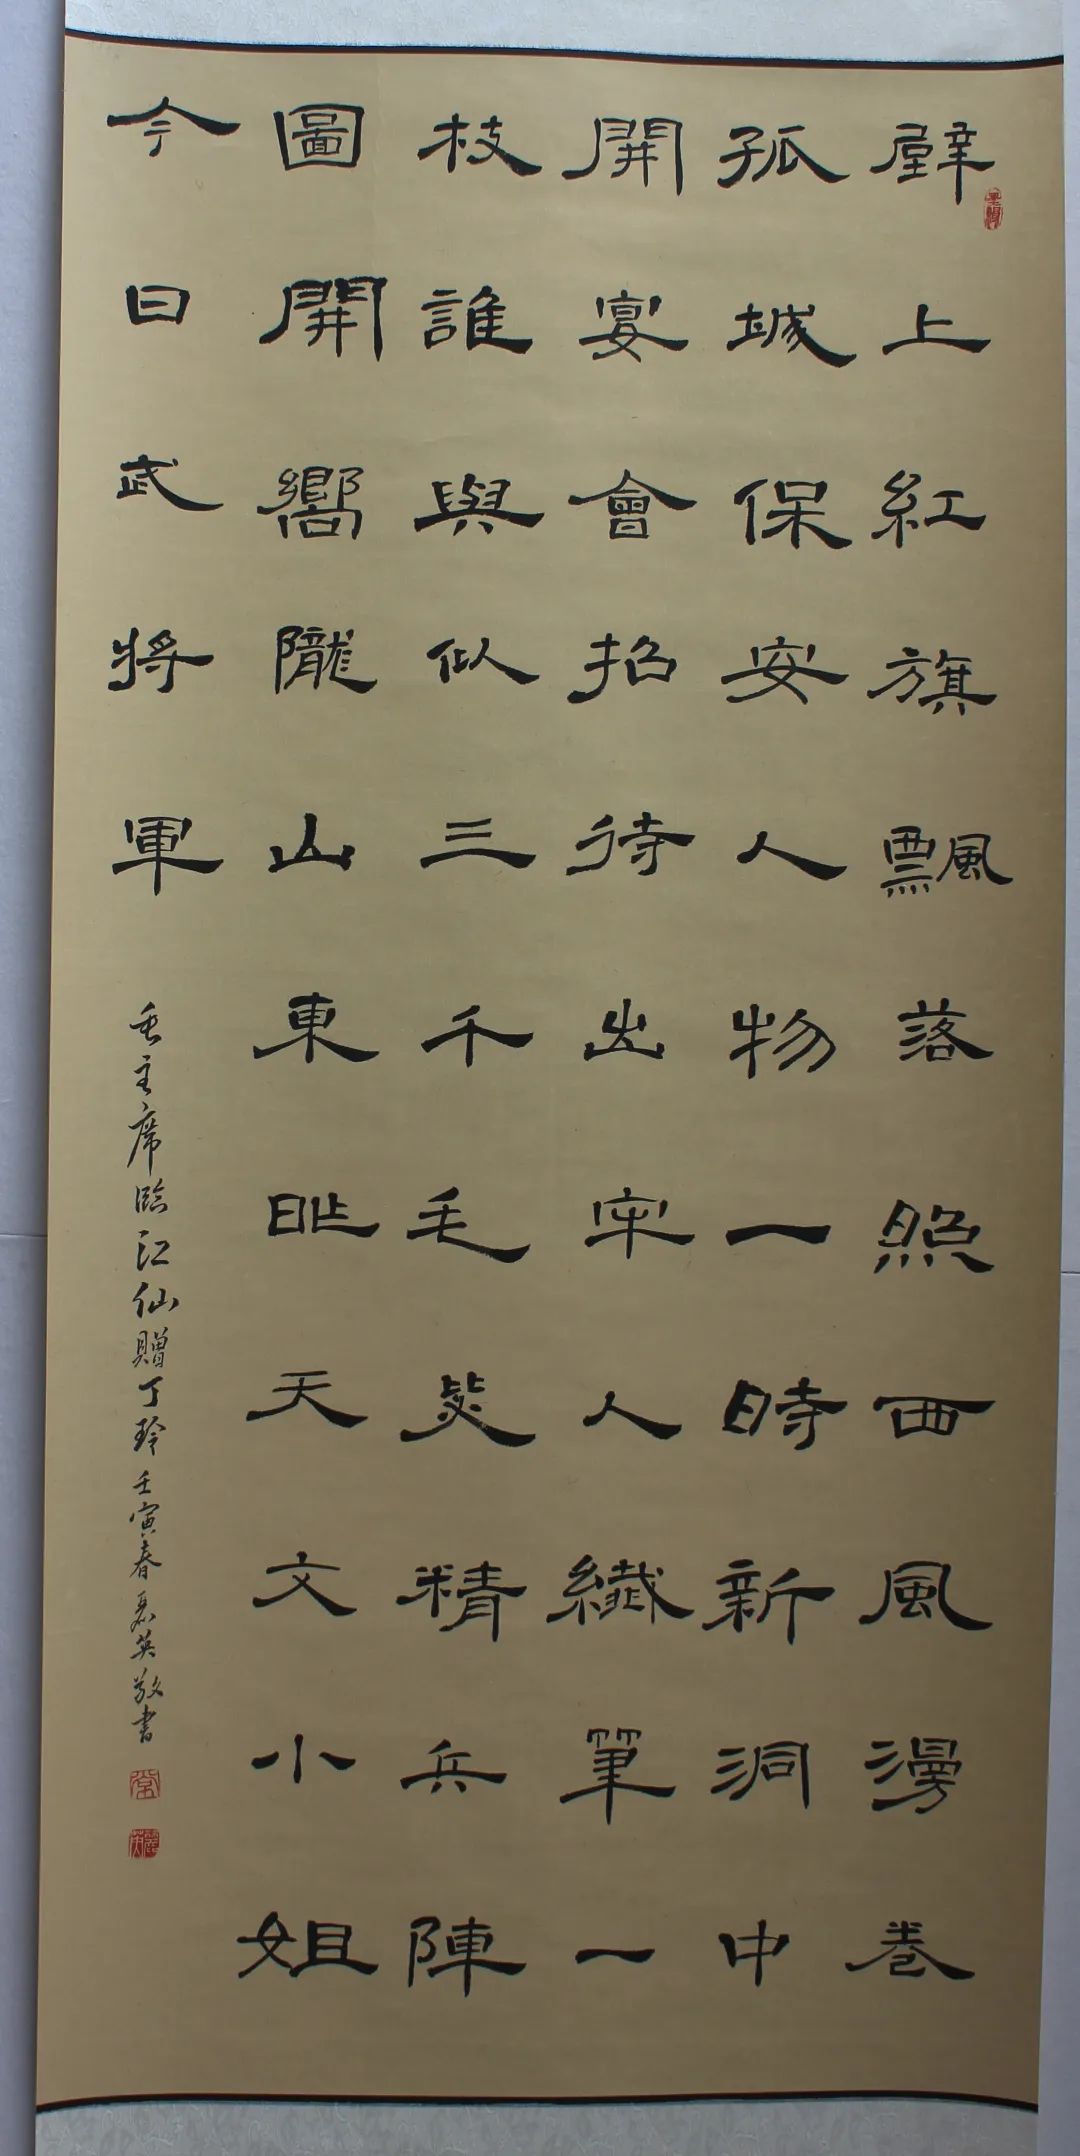 壁上紅旗飄落照西風漫卷
孤城保安人物一時新洞中
開宴會招待出牢人纖筆一
枝誰與似三千毛瑟精兵陣
圖開嚮隴山東昨天文小姐
今日武將軍
毛主席臨江仙贈丁玲壬寅春麗英敬書
麗英